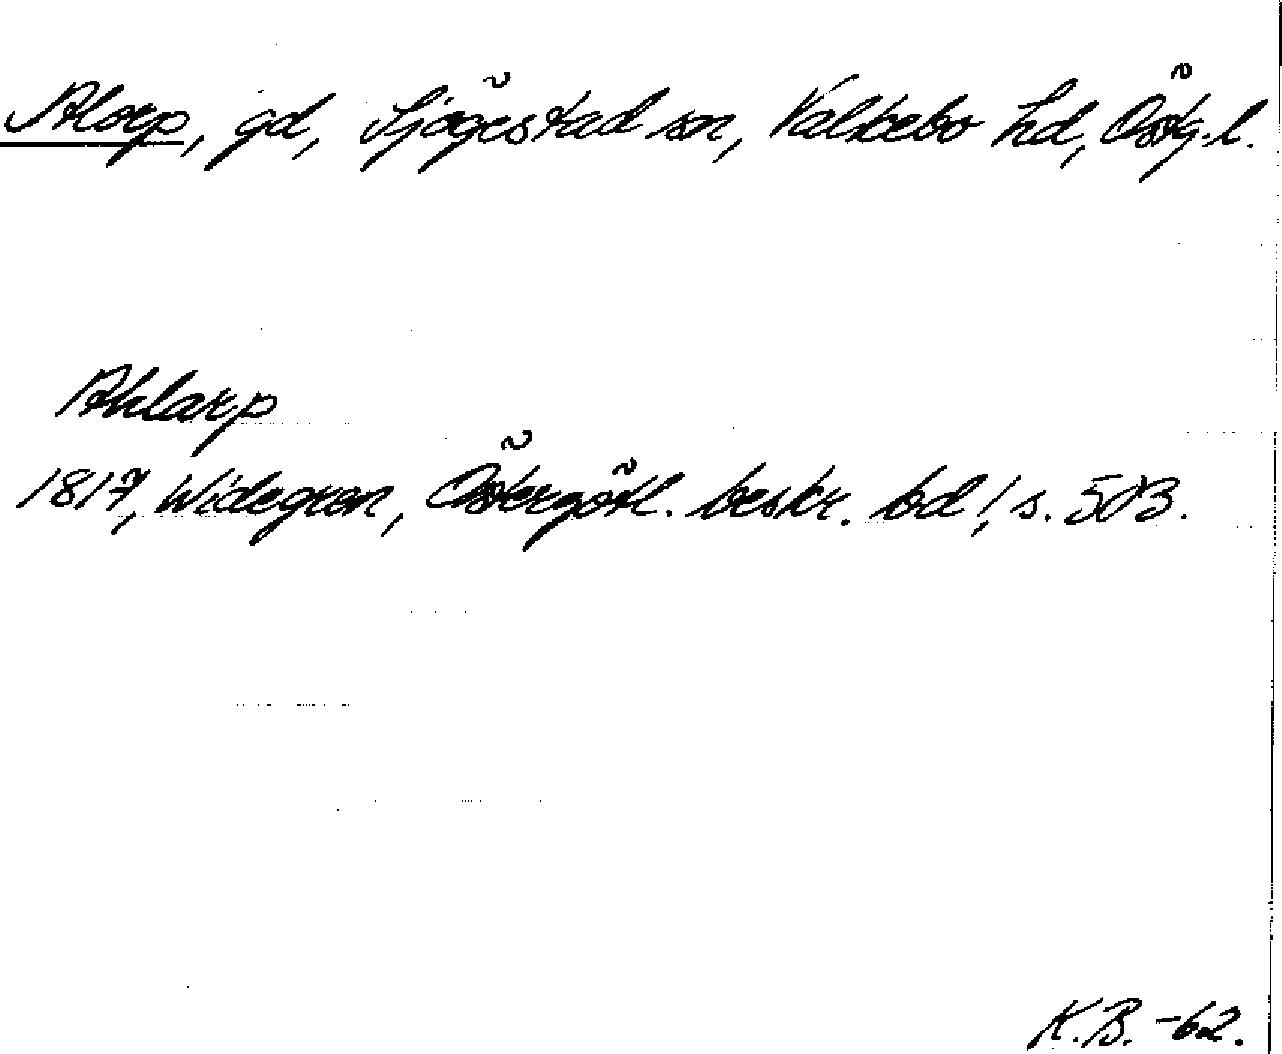 Alorp, gd, Sjögestad sn, Valkebo hd, Östg.l.
Ahlarp
1817, Widegren, Östergötl. beskr. bd 1, s. 503.
K.B. -62.